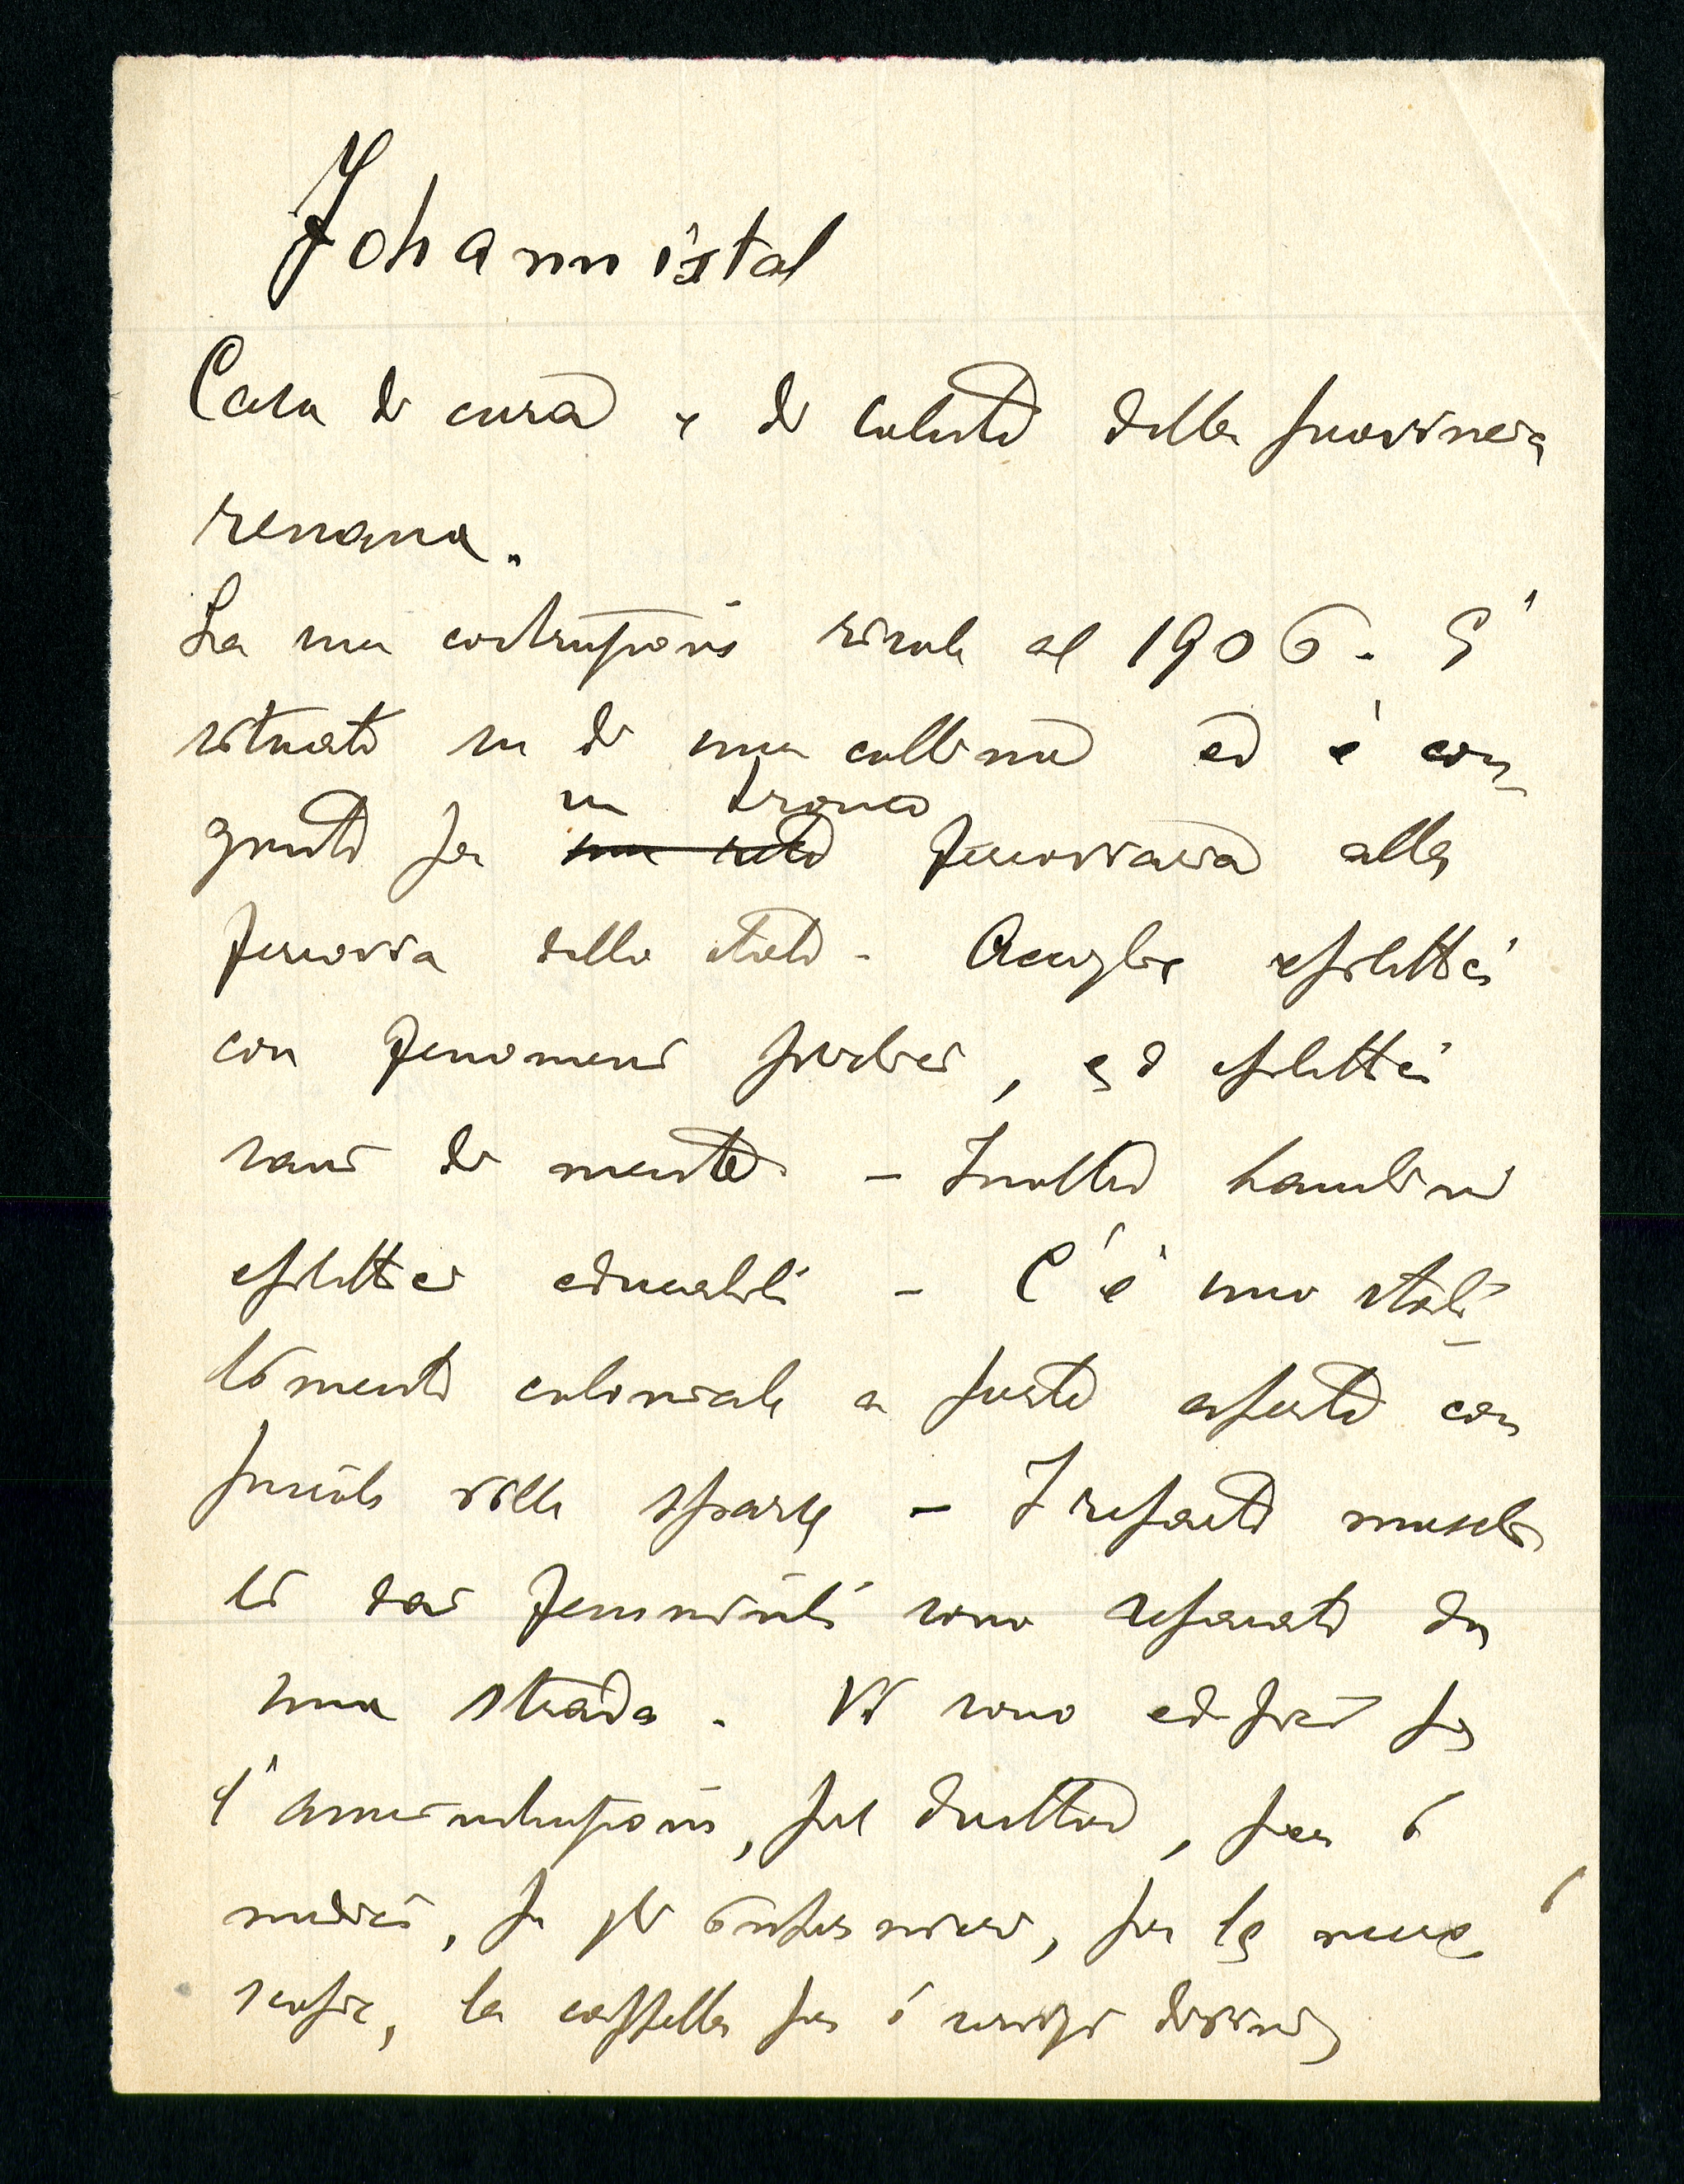 Johannistal
Casa di cura e di salute della provincia
renana.
La sua costruzione risale al 1906. E'
situato su di una collina ed è con-
giunto per un tronco ferroviario alla
ferrovia dello stato - Accoglie epilettici
con fenomeni psichici, ed epilettici
sani di mente - Inoltre bambini
epilettici educabili - C'è uno stabi-
limento coloniale a porte aperte con
piccole ville sparse - I reparti maschi-
li dai femminili sono separati da
una strada. Vi sono edifici per
l'amministrazione, pel direttore, per i
medici, per gli infermieri, per le
la cappella per i servizi divini,